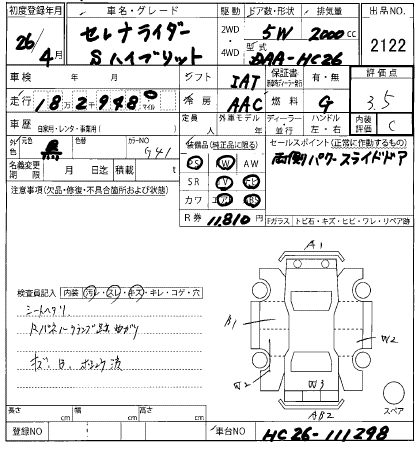 初度登録年月 車名・グレード 駆動 ドア数・形状 排気量 出品NO
26/4月 セレナライダー Sハイブリット 2WD・4WD 5W 2000cc 2122
型式 DAA-HC26
車検 年 月 シフト IAT 保証書 燃料 G 評価点 3.5
走行 18万2千948 マイル 冷房 AAC
車歴 自家用・レンタ・事業用( )
定員 人 外車モデル 年 ディーラー・並行 ハンドル 左・右 内装評価 C
外色 元色 黒 色替 カラーNO G41
装備品(純正品に限る) セールスポイント(正常に作動するもの)
PS W AW
SR V ナビ
カワ エアB
両側パワースライドドア
名義変更期限 月 日迄 積載 t
注意事項(欠品・修復・不具合箇所および状態)
R券 11,810円
Fガラス トビ石・キズ・ヒビ・ワレ・リペア跡
検査員記入 内装 汚レ・スレ・キズ・キレ・コゲ・穴
シートヘタリ
キズ、凹、
A1
B1
W2
W2
W3
AB2
スペア
長さ cm 幅 cm 高さ cm
登録NO 車台NO HC26-111298